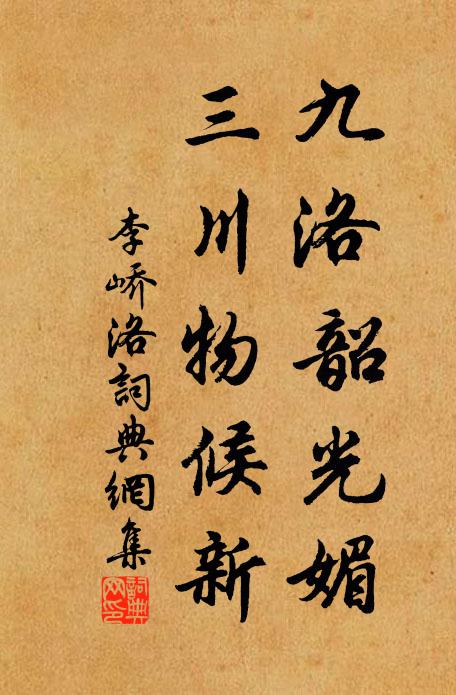 九洛韶光媚
三川物候新
李嶠洛詞典網集
詞典
网印